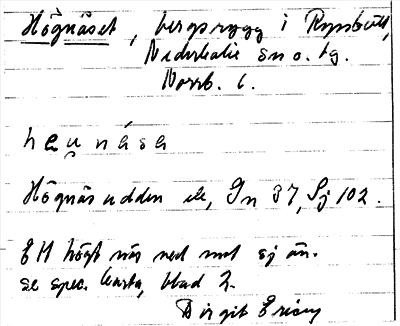 Högnäset, bergsrygg i Rynbäck,
Nederkalix sn o. tg.
Norrb. l.
hęu̯nása
Högnäsudden ek, Gn 37, Sj 102.
EH högt näs ned mot sjön.
se spec. karta, blad 2.
Birgit Ericy